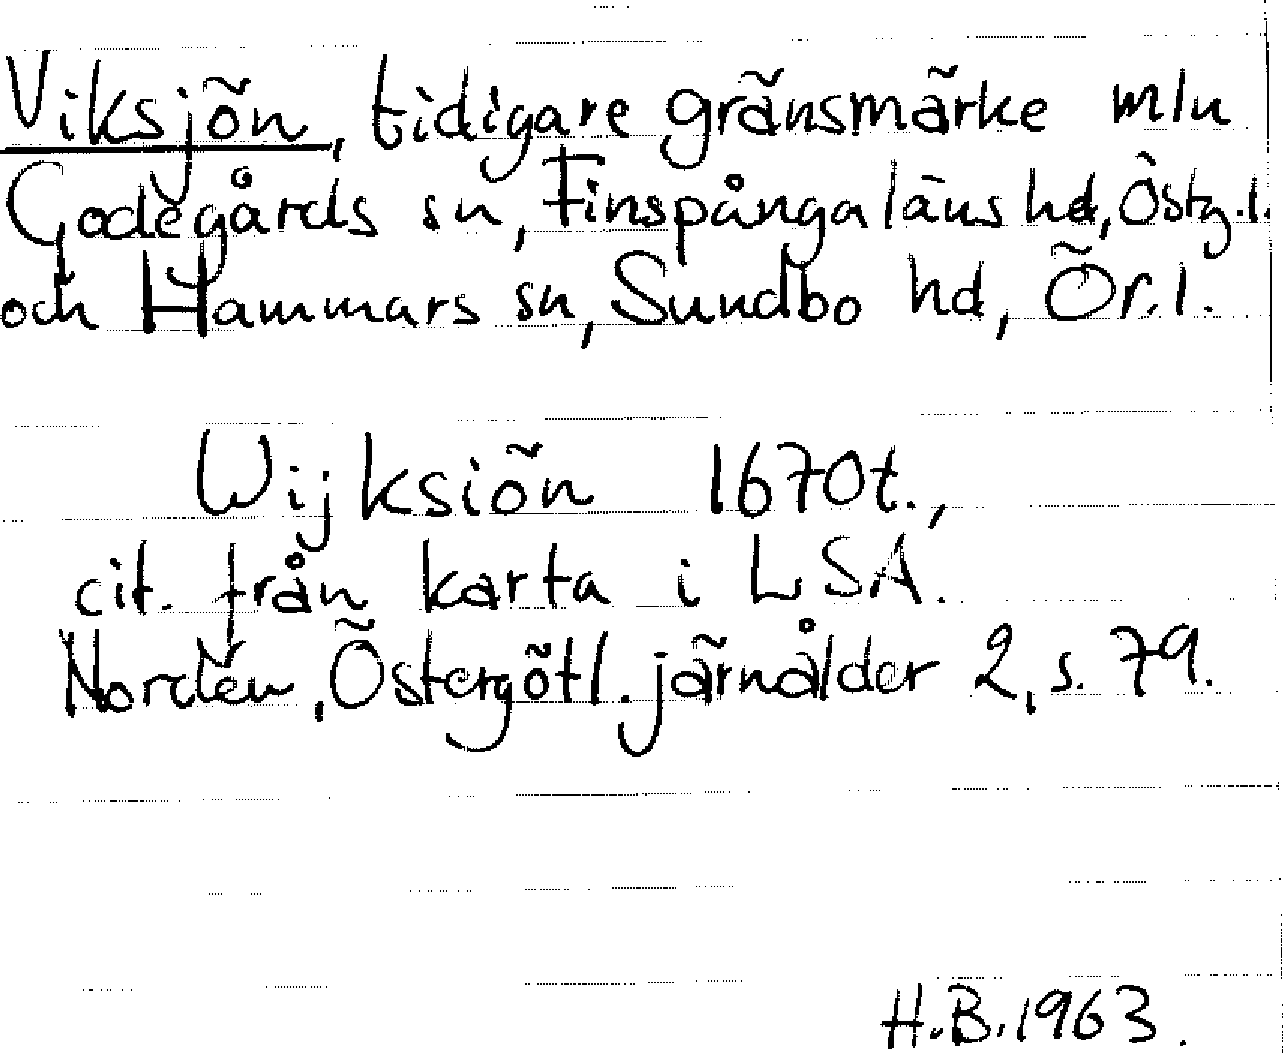 Viksjön, tidigare gränsmärke mlu
Godegårds sn, Finspånga läns hd, Östg.l.
och Hammars sn, Sundbo hd, Ör.l.
Wijksiön 1670t.,
cit. från karta i LSA.
Nordén, Östergötl. järnålder 2, s. 79.
H.B. 1963.